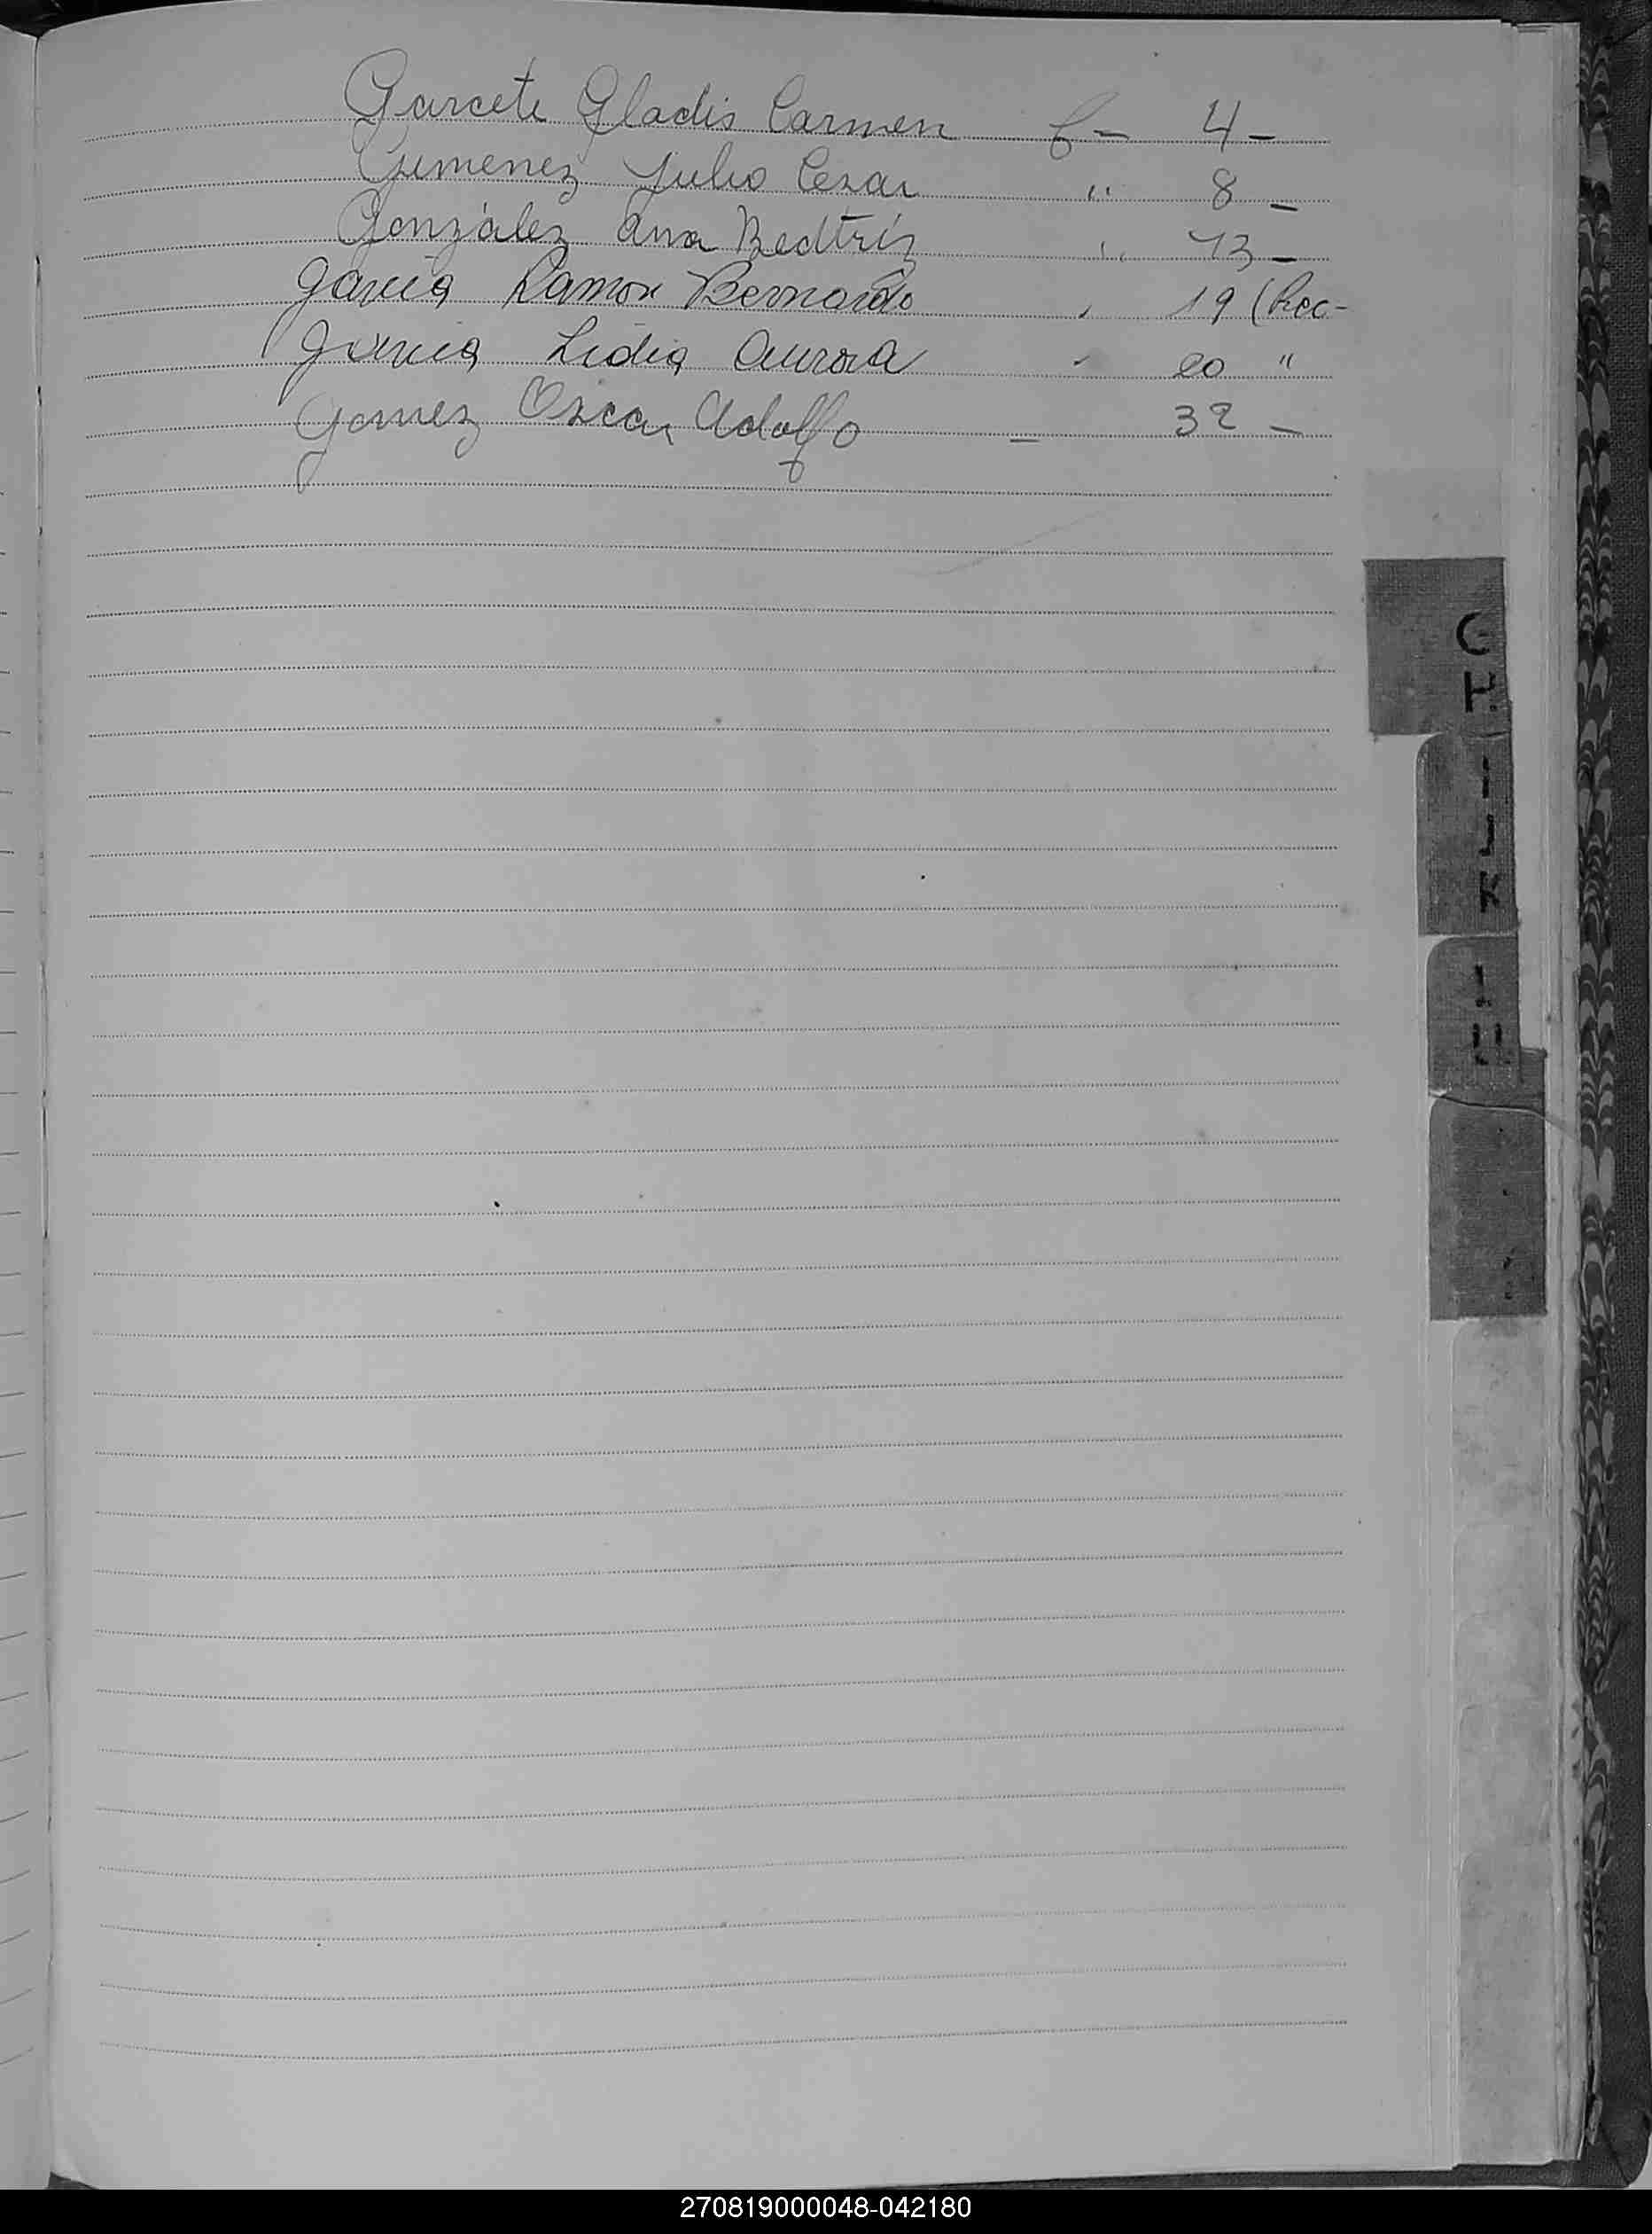 Garcete Gladis Carmen f- 4-
Gimenez Julio Cesar " 8-
González Ana Beatríz " 13-
Garcia Ramon Bernardo , 19 (Rec-
Garcia Lidia Aurora - 20 "
Gomez Oscar Adolfo - 32 -
G
H
I
J
K
L
270819000048-042180